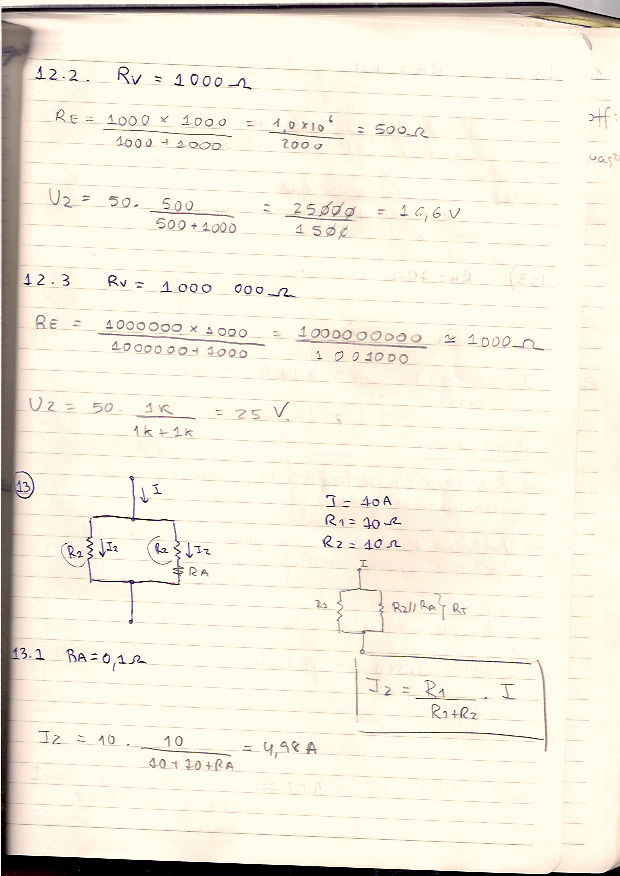 12.2. Rv = 1000 Ω
RE = 1000 × 1000 / 1000 + 1000 = 1,0 × 10⁶ / 2000 = 500 Ω
U2 = 50. 500 / 500 + 1000 = 25000 / 1500 = 16,6 V
12.3 Rv = 1000 000 Ω
RE = 1000000 × 1000 / 1000000 + 1000 = 1000000000 / 1001000 ≃ 1000 Ω
U2 = 50. 1K / 1K + 1K = 25 V.
13
I
I = 10A
R1 = 10 Ω
R2 = 10 Ω
I2
R2
I2
RA
I
R2//RA } RT
13.1 RA = 0,1 Ω
I2 = R1 / R1+R2 . I
I2 = 10 . 10 / 10 + 10 + RA = 4,98 A